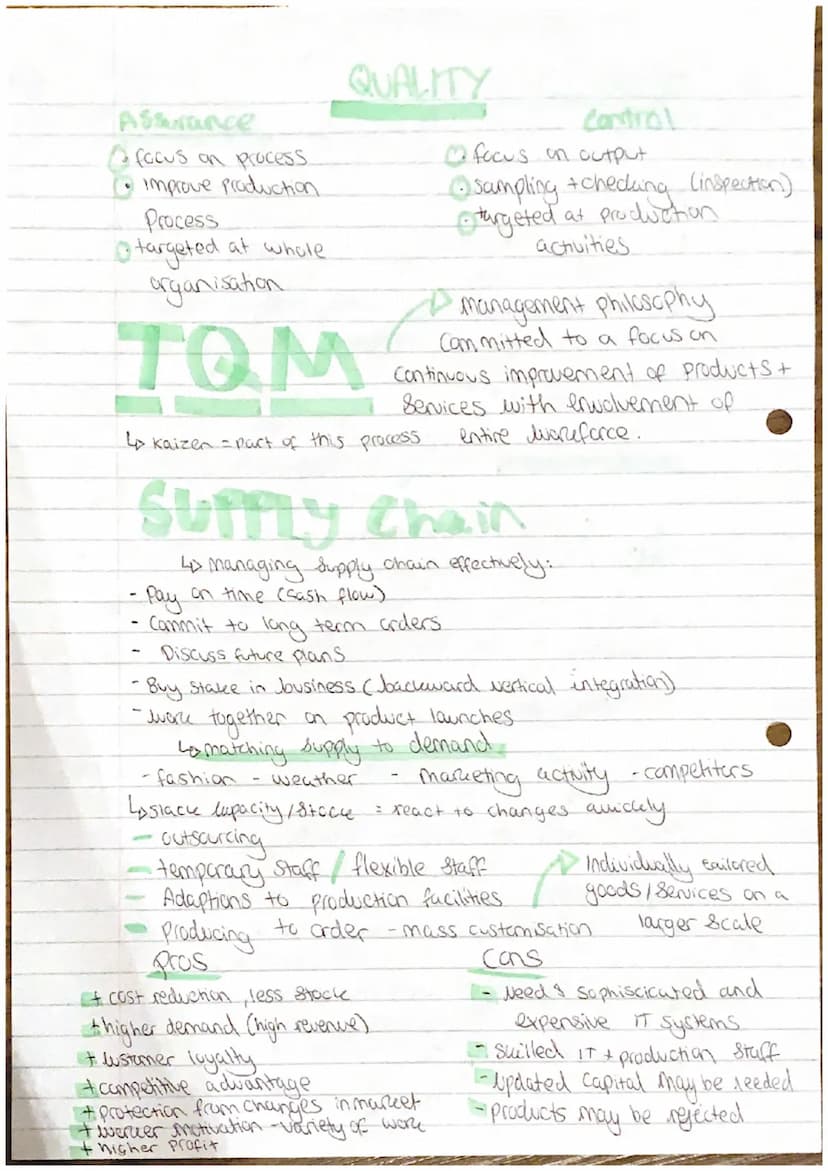 QUALITY
Assurance
focus on process
improve production
Process
targeted at whole
organisation
Control
focus on output
sampling + checking (inspection)
targeted at production
activities
TQM
management philosophy
committed to a focus on
continuous improvement of products +
services with involvement of
entire workforce.
↳ Kaizen = part of this process
SUPPLY Chain
↳ Managing supply chain effectively:
- Pay on time (cash flow)
- Commit to long term orders
- Discuss future plans
- Buy stake in business (backward vertical integration)
- work together on product launches
↳ matching supply to demand
- fashion - weather - marketing activity - competitors
↳ slack capacity / stock = react to changes quickly
- outsourcing
- temporary staff / flexible staff
- Adaptions to production facilities
- producing to order - mass customisation
Individually tailored
goods / services on a
larger scale
Pros
+ cost reduction, less stock
+ higher demand (high revenue)
+ customer loyalty
+ competitive advantage
+ protection from changes in market
+ worker motivation - variety of work
+ higher profit
Cons
- need sophiscicated and
expensive IT systems
- skilled IT + production staff
- updated capital may be needed
- products may be rejected